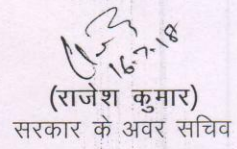 16.7.18
(राजेश कुमार)
सरकार के अवर सचिव